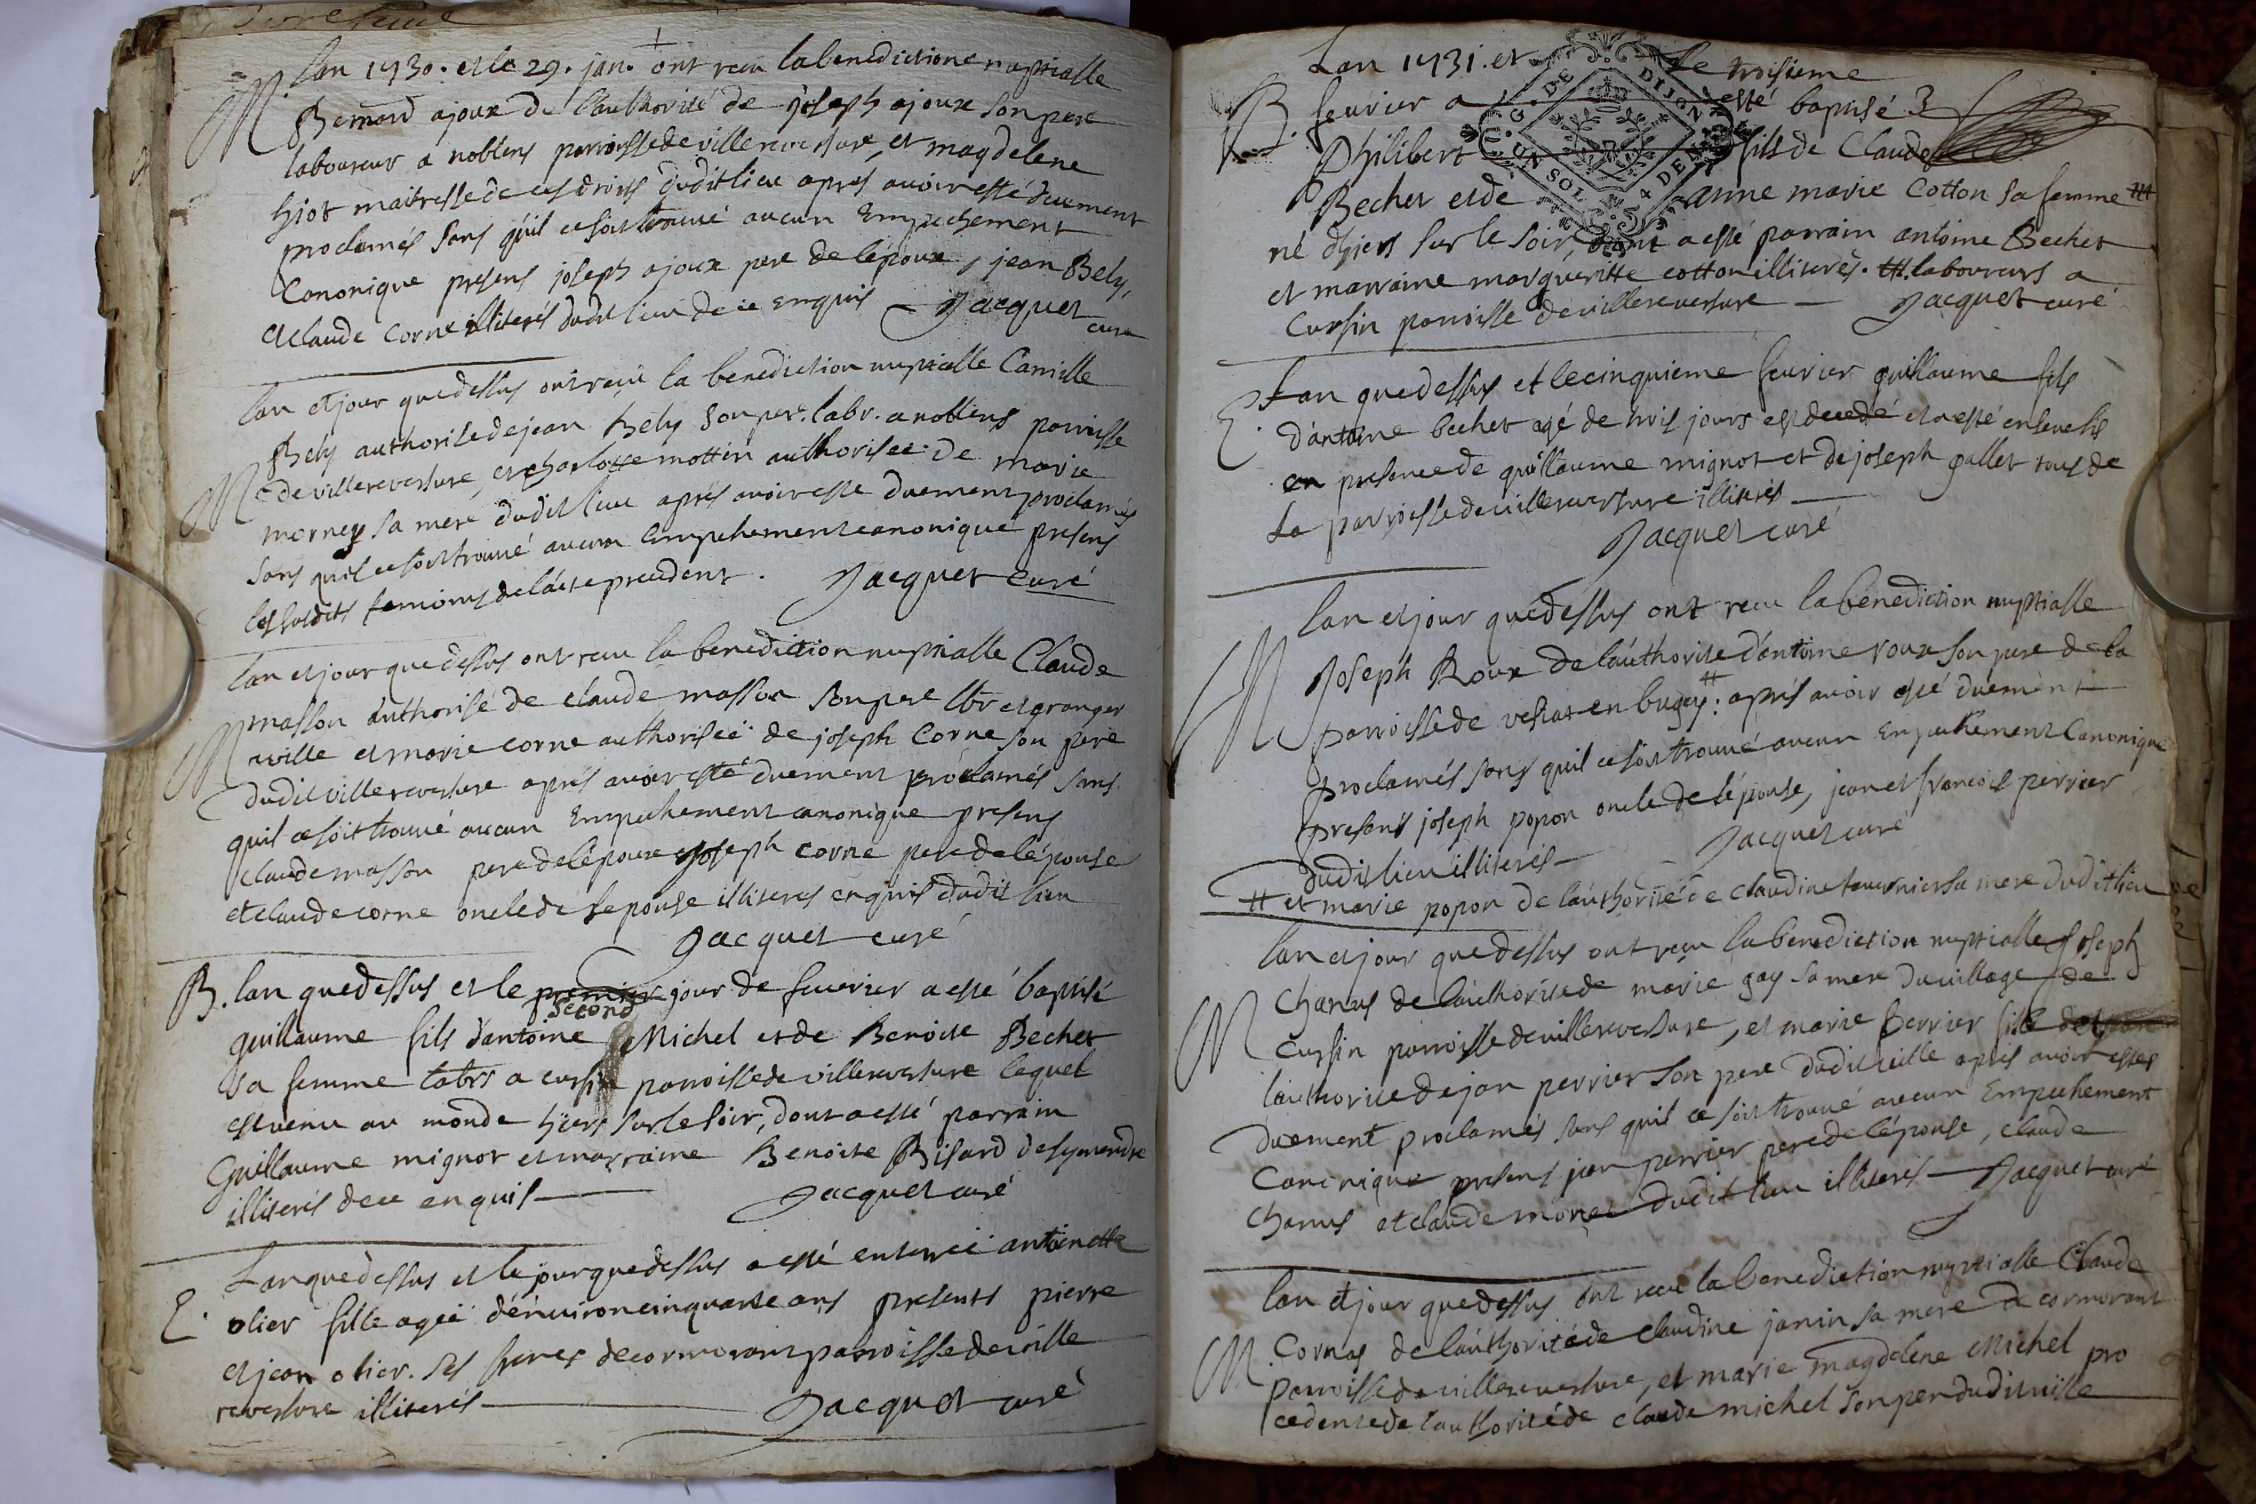 Lan 1730. et le 29. jan. ont receu la benedictione nuptialle
M. Bernard ajoux de lauthorité de joseph ajoux son pere
laboureur a noblens parroisse de villereversure, et magdelene
hjot maitresse de ces droits dudit lieu apres avoir esté duement
proclamés sans quil ce soit trouvé aucun Empechement
Canonique presens joseph ajoux pere de lépoux, jean Bely,
et claude corne illiterés dudit lieu de ce enquis Jacquet
curé
lan et jour que dessus ont receu la benediction nuptialle Camille
Bely authorisé de jean Bely son pere. labr. a noblens parroisse
M de villereversure, et charlotte mottin authorisee de marie
morney sa mere dudit lieu aprés avoir esté duement proclamés
sans quil ce soit trouvé aucun empechement canonique presens
les susdits temoins de lacte precedent. Jacquet curé
lan et jour que dessus ont receu la benediction nuptialle Claude
M masson authorisé de claude masson son pere lbr et granger
a ville et marie corne authorisée de joseph Corne son pere
dudit villereversure aprés avoir esté duement proclamés sans
quil ce soit trouvé aucun Empechement canonique presens
claude masson pere de lépoux joseph corne pere de lépouse
et claude corne oncle de lepouse illiteres enquis dudit lieu
Jacquet curé
B. lan que dessus et le premier jour de fevrier a esté baptisé
second
guillaume fils dantoine Michel et de Benoite Bechet
sa femme labrs a cursin parroisse de villereversure lequel
est venu au monde hjers sur le soir, dont a esté parrain
Guillaume mignot et marraine Benoite Bisard de symendre
illiterés de ce enquis Jacquet curé
Lan que dessus et le jour que dessus a esté enterée antoinette
E. olier fille agée dénviron cinquante ans presents pierre
et jean olier. ses freres de cormorant parroisse de ville
reversure illiterés Jacquet curé
Lan 1731. et le troisieme
B. fevrier a esté baptisé
Philibert fils de Claude
Bechet et de anne marie Cotton sa femme ttt
né hjers sur le soir, dont a esté parrain antoine Bechet
et marraine marguéritte cotton illiterés. ttt. laboureurs a
Cursin parroisse de villereversure Jacquet curé
G. DE DIJON
UN SOL 4 DEN
Lan que dessus et le cinquieme fevrier guillaume fils
E. dantoine bechet agé de trois jours est decedé et a esté enseveli
en presence de guillaume mignot et de joseph gallet tous de
la parroisse de villereversure illiterés
Jacquet curé
lan et jour que dessus ont receu la benediction nuptialle
M Joseph Roux de lauthorité dantoine roux son pere de la
parroisse de en bugey tt: aprés avoir esté duement
proclamés sans quil ce soit trouvé aucun Empechement Canonique
presens joseph popon oncle de lépouse, jean et francois perrier
dudit lieu illiterés Jacquet curé
tt et marie popon de lauthorité de claudine tavernier sa mere dudit lieu
lan et jour que dessus ont receu la benediction nuptialle joseph
M Chanus de lauthorité de marie gay sa mere du village de
cursin parroisse de villereversure, et marie perrier fille de
lauthorité de jan perrier son pere dudit ville aprés avoir estés
duement proclamés sans quil ce soit trouvé aucun Empechement
Canonique presens jean perrier pere de lépouse, claude
Chanus et claude moner dudit lieu illiterés Jacquet curé
lan et jour que dessus ont receu la benediction nuptialle Claude
M. Cornas de lauthorité de claudine janin sa mere de cormorant
parroisse de villereversure, et marie magdelene Michel pro
cedente de lauthorité de claude michel son pere dudit ville